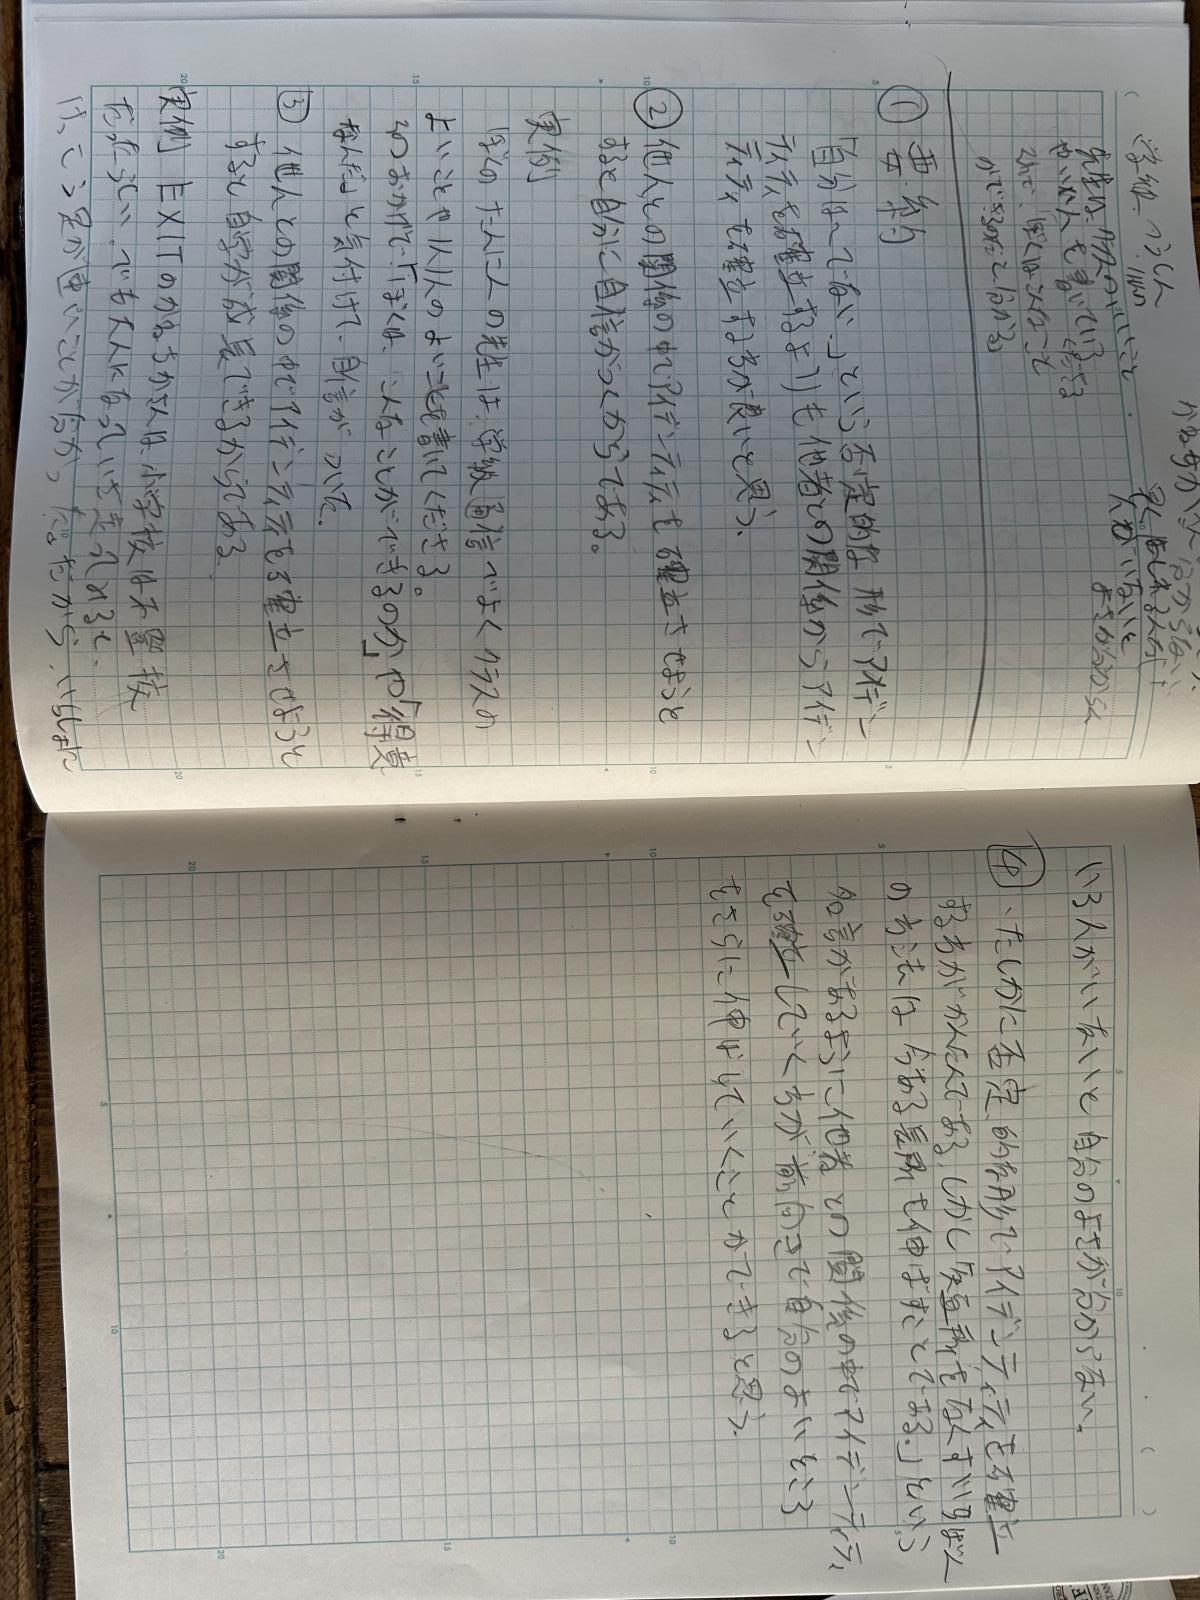 学級つうしん
先生は、クラスのいいこと
やいい人を書いている。
それで、ぼくはこんなこと
ができるのだと分かる
よさが分からない
人がいないと
① 要約
「自分は〜でない」という否定的な形でアイデン
ティティを確立するよりも他者との関係からアイデン
ティティを確立する方が良いと思う。
② 他人との関係の中でアイデンティティを確立させようと
すると自分に自信がつくからである。
実例
ぼくのたんにんの先生は、学級通信でよくクラスの
よいことやその人のよいことを書いてくださる。
そのおかげで「ぼくは、こんなことができるのか」や「得意
なんだ」と気付けて、自信がついた。
③ 他人との関係の中でアイデンティティを確立させようと
すると自分が成長できるからである。
実例 EXITのかねちかさんは小学校は不登校
だったらしい、でも大人になっていま考えてみると、
けっこう足が速いことが分かった。だから、いじょうに
いる人がいないと自分のよさが分からない。
④ 、たしかに否定的な形でアイデンティティを確立
する方がかんたんである。しかし「短所をなくすいちばん
の方法は今ある長所を伸ばすことである。」という
名言があるように他者との関係の中でアイデンティティ
を確立していく方が前向きで自分のよいところ
をさらに伸ばしていくことができると思う。